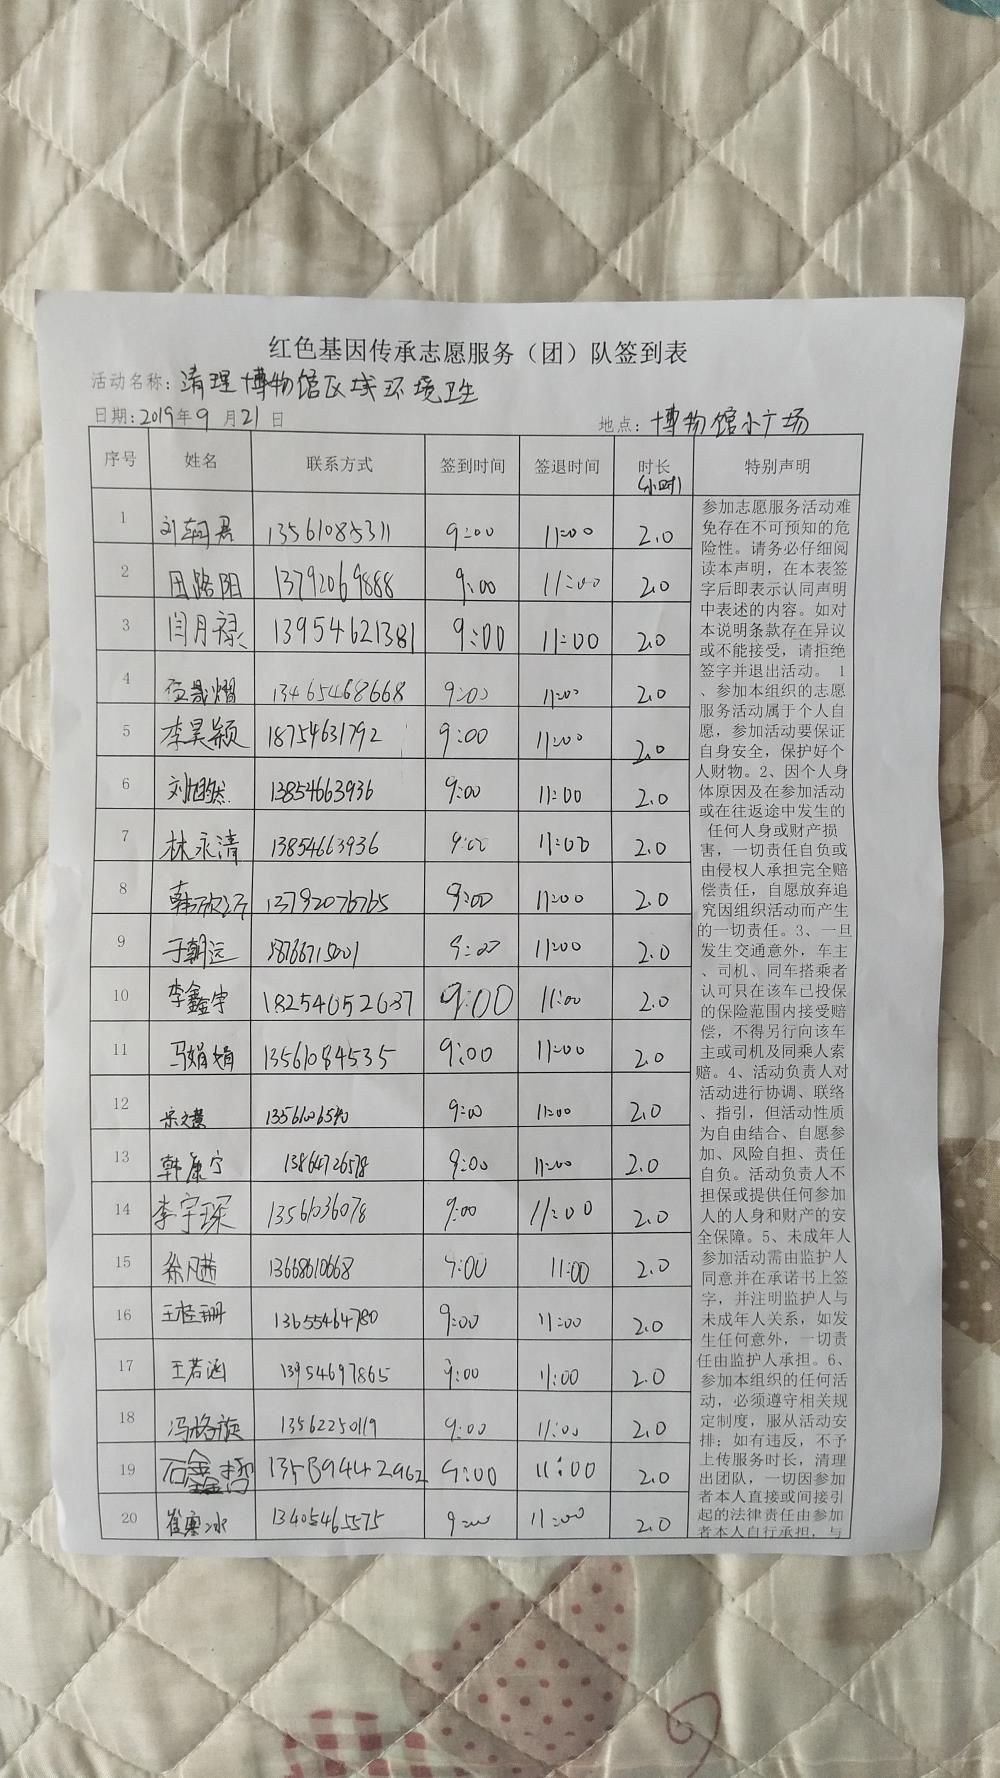 红色基因传承志愿服务（团）队签到表
活动名称：清理博物馆区域环境卫生
日期：2019年9月21日 地点：博物馆小广场
序号 姓名 联系方式 签到时间 签退时间 时长（小时） 特别声明
1 刘君 13561085311 9:00 11:00 2.0
2 田路阳 13792069888 9:00 11:00 2.0
3 闫月禄 13954621381 9:00 11:00 2.0
4 13465468668 9:00 11:00 2.0
5 李昊颖 18754631792 9:00 11:00 2.0
6 刘旭然 13854663936 9:00 11:00 2.0
7 林永清 13854663936 9:00 11:00 2.0
8 韩欣 13792076765 9:00 11:00 2.0
9 于朝远 18766715001 9:00 11:00 2.0
10 李鑫宇 18254652637 9:00 11:00 2.0
11 马娟娟 13561084535 9:00 11:00 2.0
12 宋文慧 9:00 11:00 2.0
13 韩康宁 13864726578 9:00 11:00 2.0
14 李宇琛 13561036078 9:00 11:00 2.0
15 徐凡茜 13668610668 9:00 11:00 2.0
16 王桂珊 13655464780 9:00 11:00 2.0
17 王若涵 13954697865 9:00 11:00 2.0
18 冯格旋 13562250119 9:00 11:00 2.0
19 石鑫 9:00 11:00 2.0
20 崔寒冰 13405465575 9:00 11:00 2.0
参加志愿服务活动难
免存在不可预知的危
险性。请务必仔细阅
读本声明，在本表签
字后即表示认同声明
中表述的内容。如对
本说明条款存在异议
或不能接受，请拒绝
签字并退出活动。 1
、参加本组织的志愿
服务活动属于个人自
愿，参加活动要保证
自身安全，保护好个
人财物。2、因个人身
体原因及在参加活动
或在往返途中发生的
任何人身或财产损
害，一切责任自负或
由侵权人承担完全赔
偿责任，自愿放弃追
究因组织活动而产生
的一切责任。3、一旦
发生交通意外，车主
、司机、同车搭乘者
认可只在该车已投保
的保险范围内接受赔
偿，不得另行向该车
主或司机及同乘人索
赔。4、活动负责人对
活动进行协调、联络
、指引，但活动性质
为自由结合、自愿参
加、风险自担、责任
自负。活动负责人不
担保或提供任何参加
人的人身和财产的安
全保障。5、未成年人
参加活动需由监护人
同意并在承诺书上签
字，并注明监护人与
未成年人关系，如发
生任何意外，一切责
任由监护人承担。6、
参加本组织的任何活
动，必须遵守相关规
定制度，服从活动安
排；如有违反，不予
上传服务时长，清理
出团队，一切因参加
者本人直接或间接引
起的法律责任由参加
者本人自行承担，与